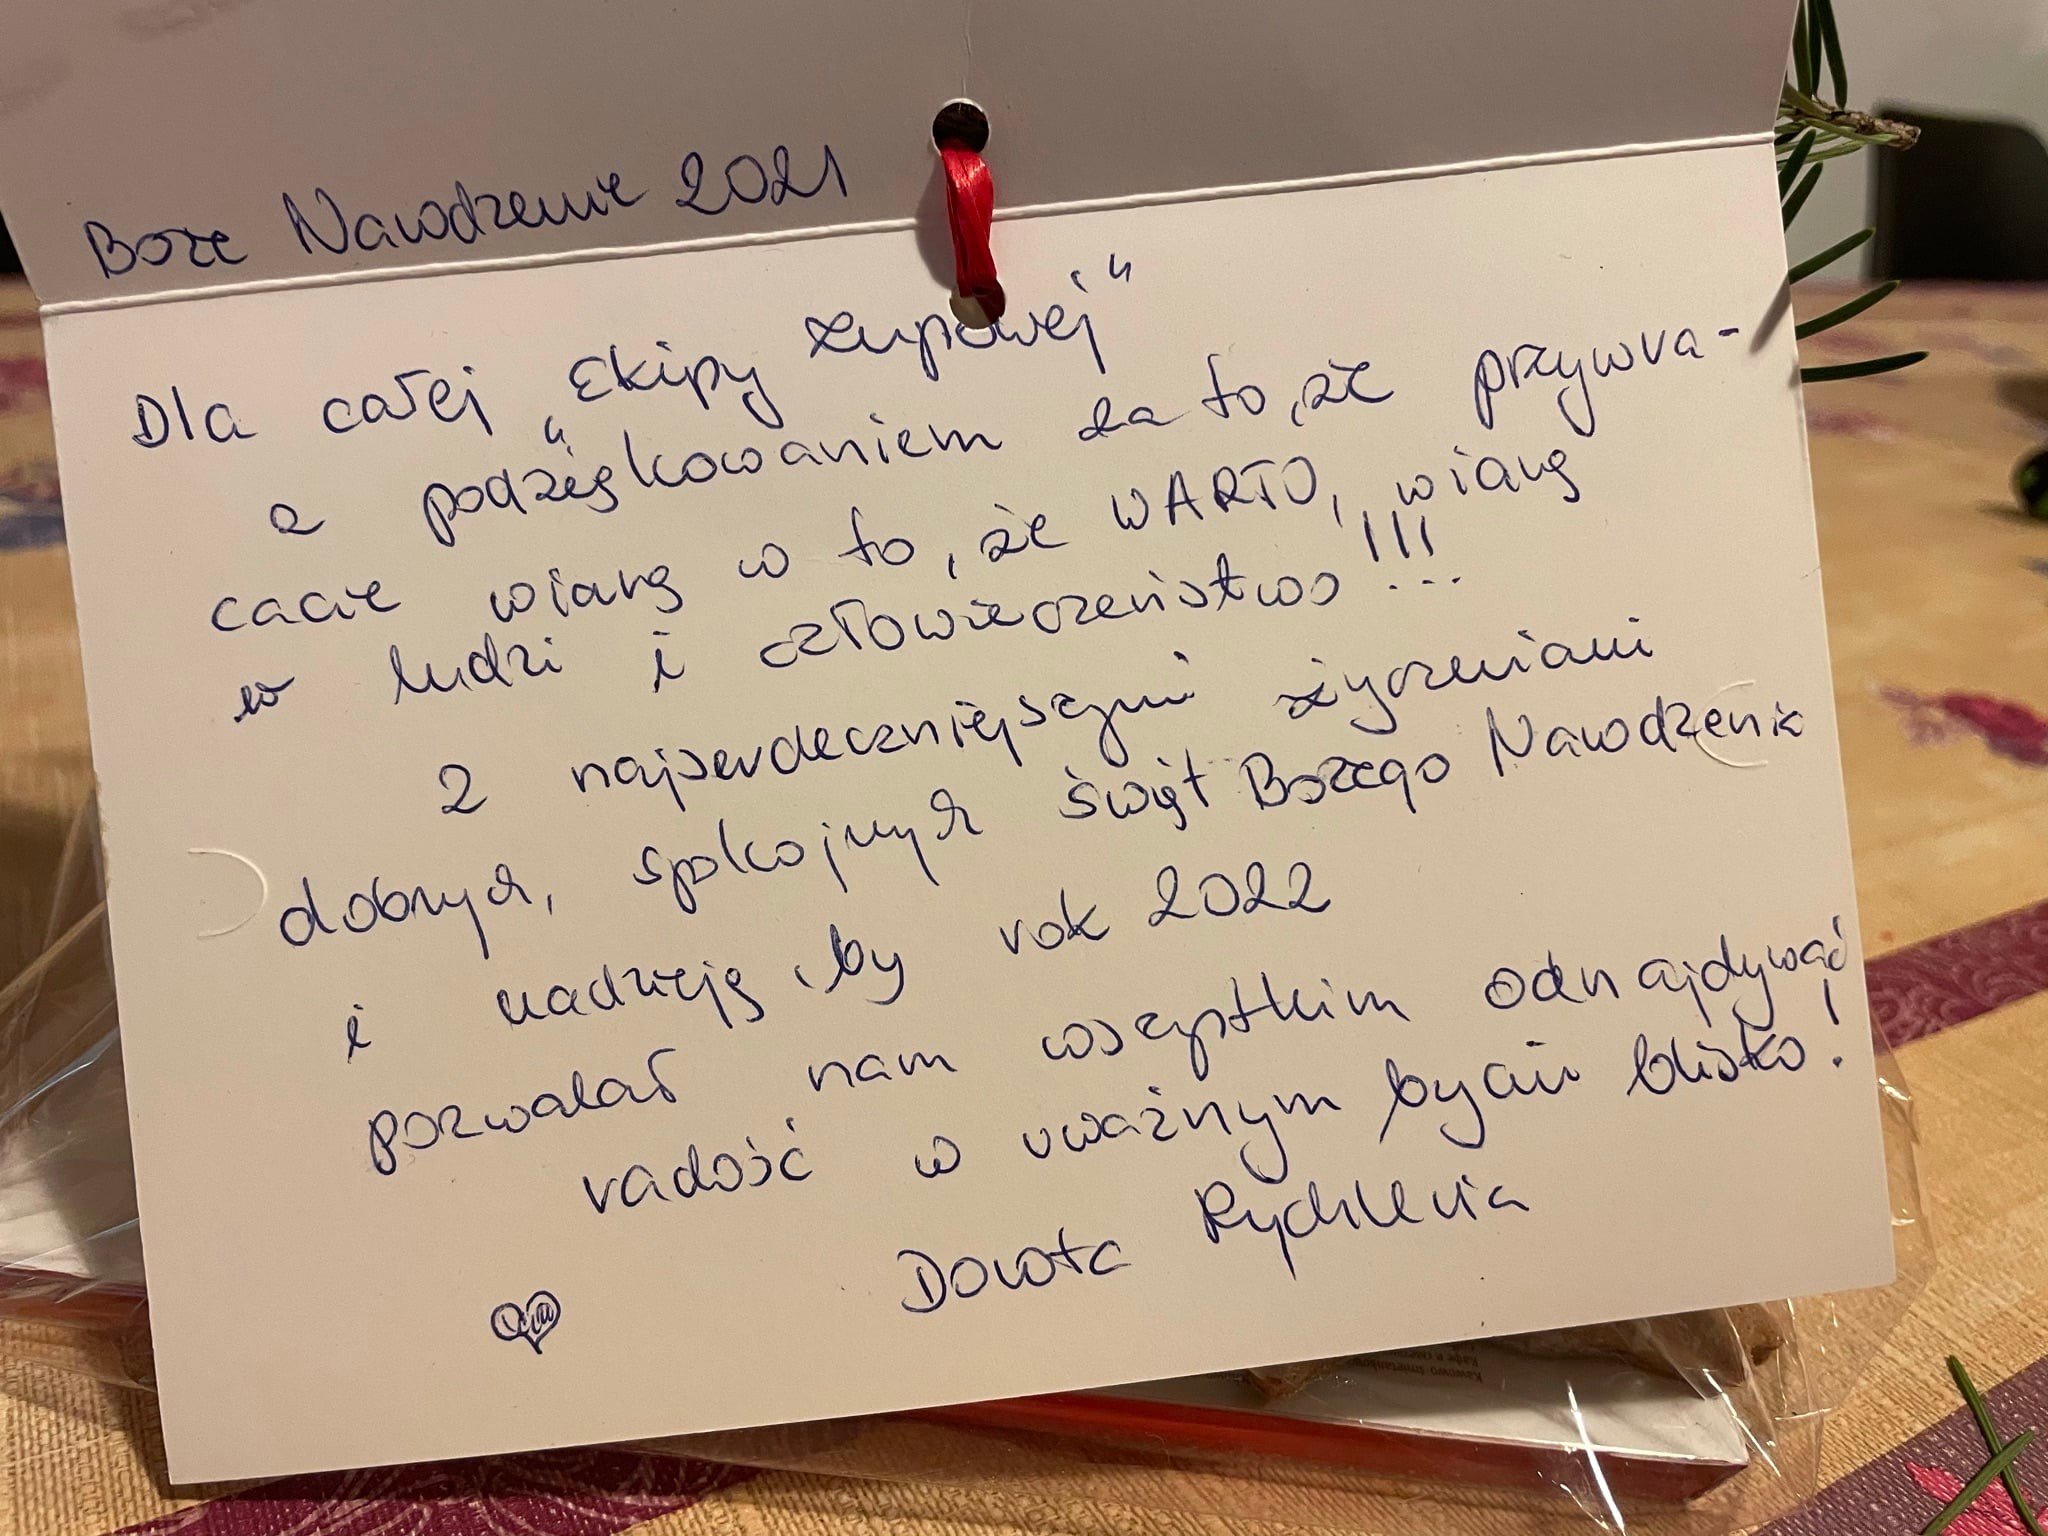 Boże Narodzenie 2021
Dla całej „Ekipy Zupowej"
z podziękowaniem za to, że przywra-
cacie wiarę w to, że WARTO, wiarę
w ludzi i człowieczeństwo!!!
Z najserdeczniejszymi życzeniami
dobrych, spokojnych świąt Bożego Narodzenia
i nadzieją, by rok 2022
pozwalał nam wszystkim odnajdywać
radość w uważnym byciu blisko!
Dorota